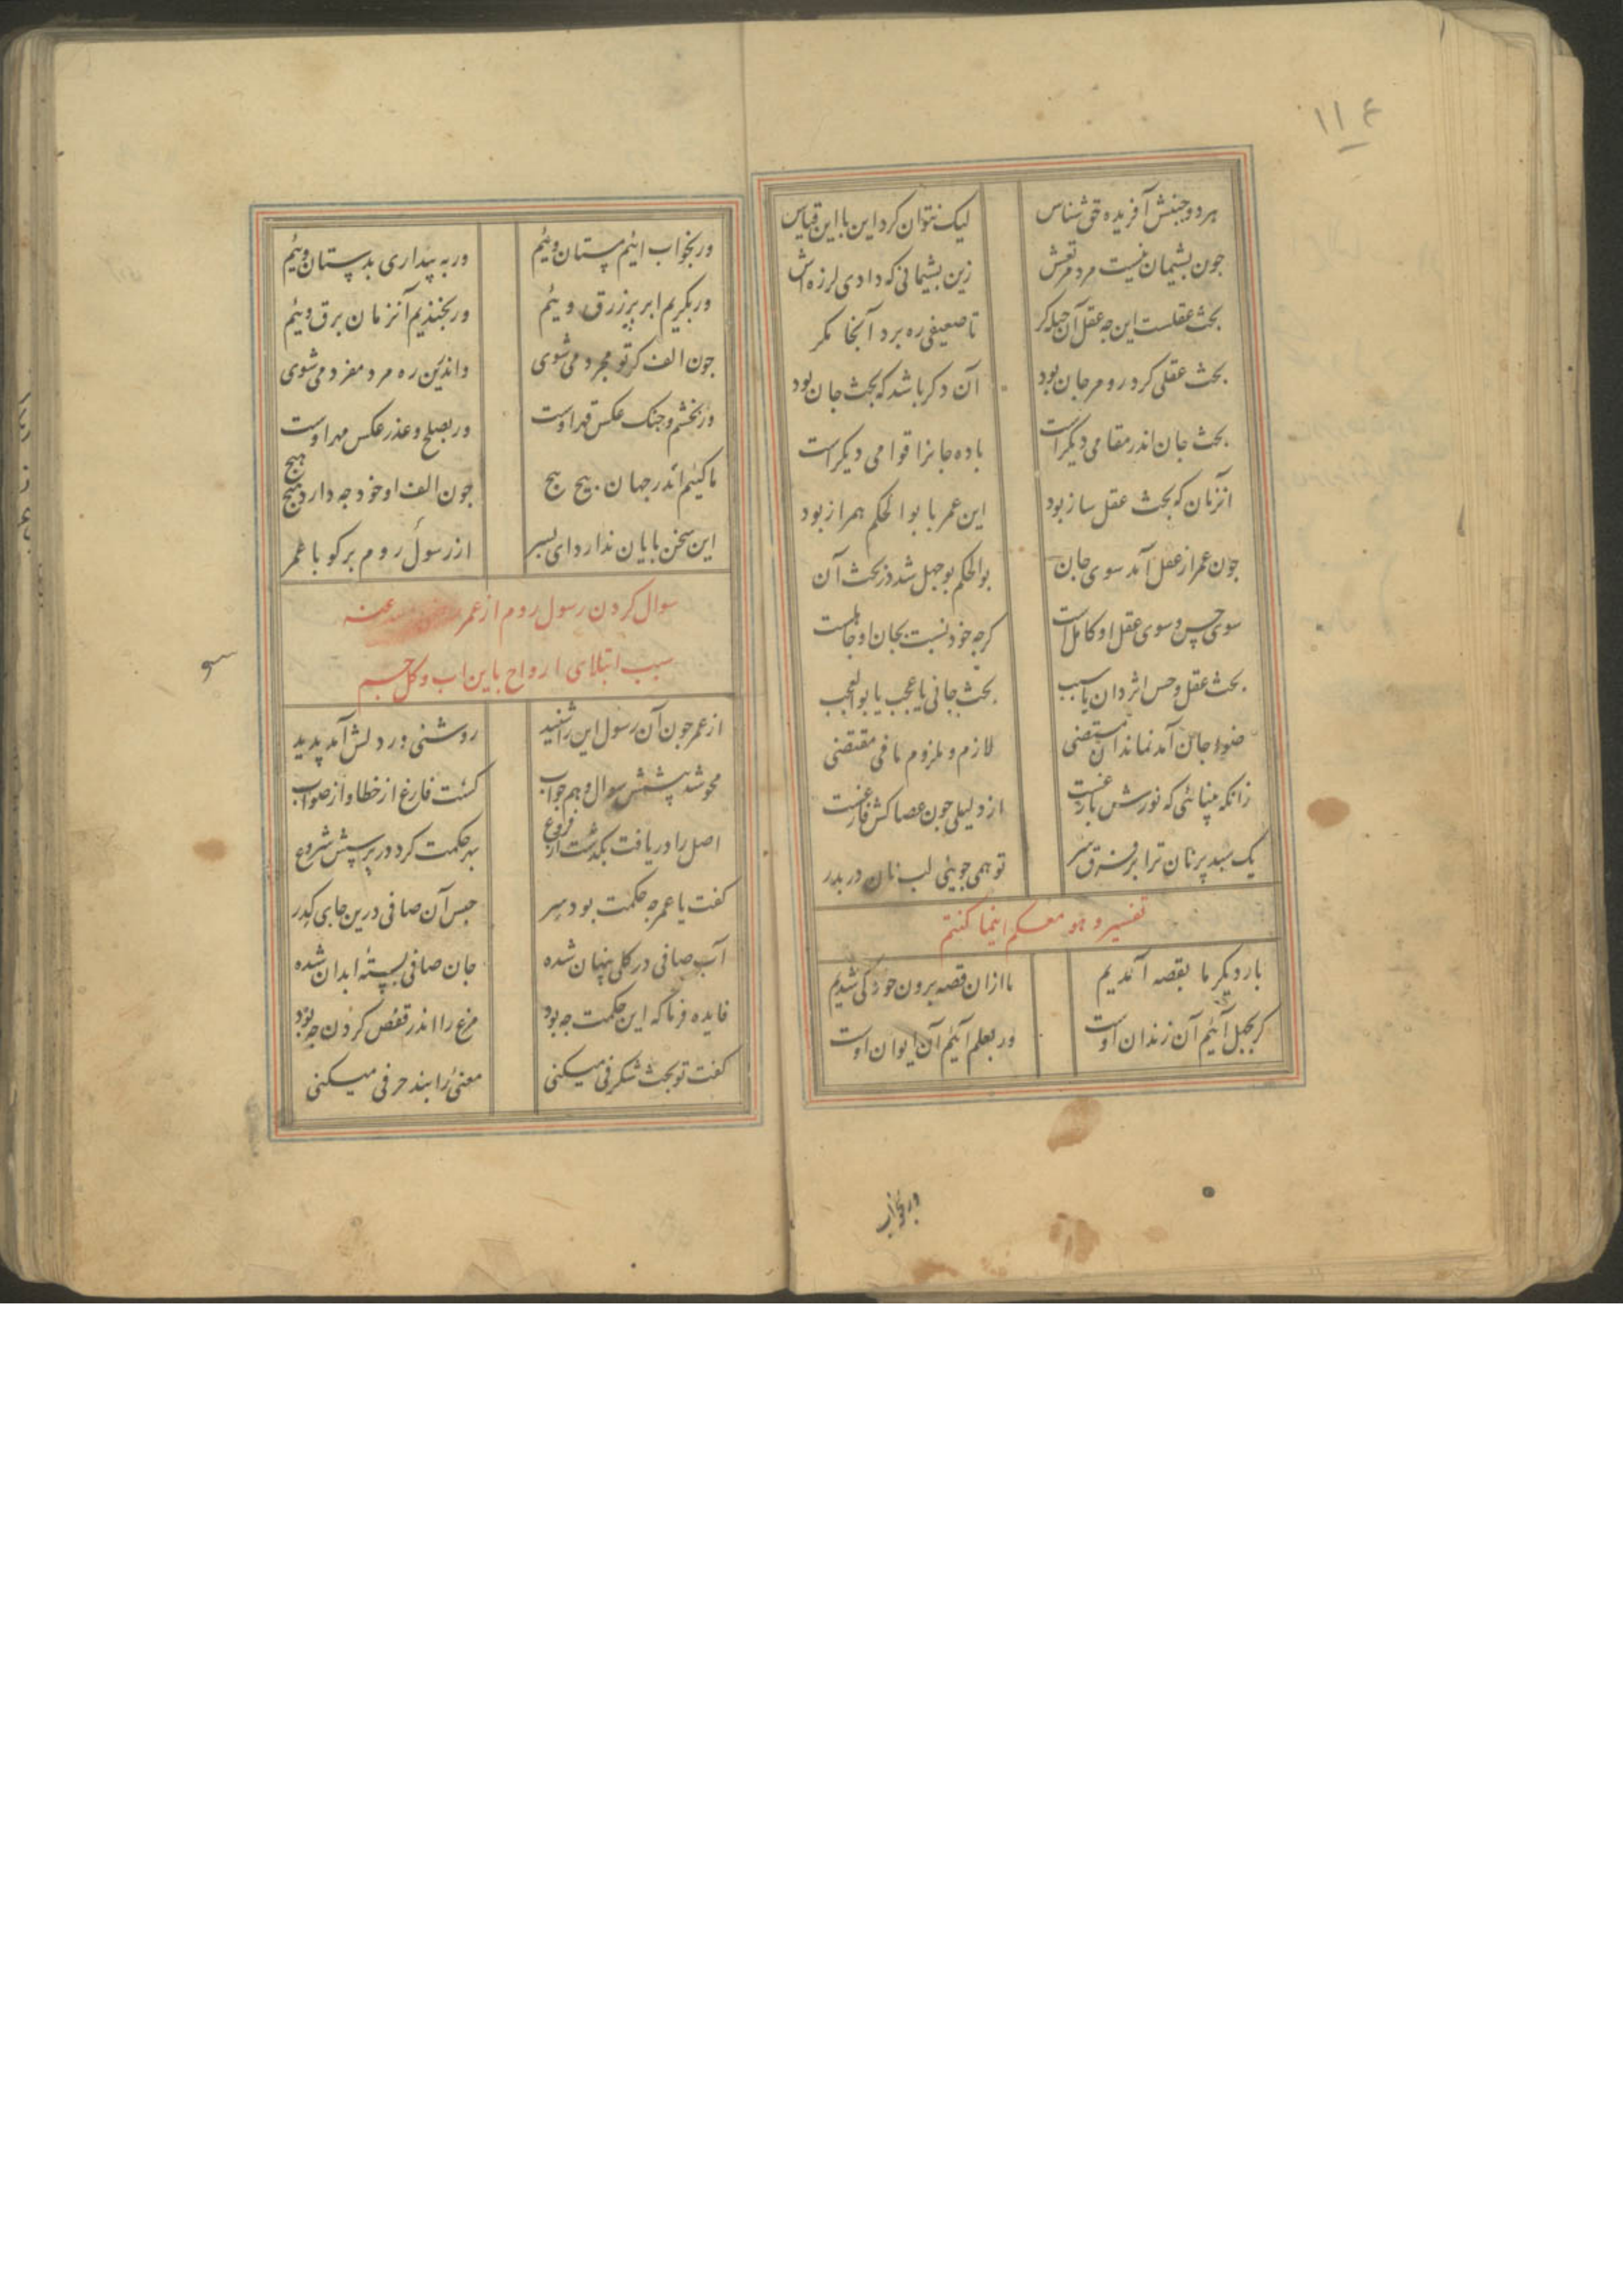 ۱۱۴
هر دو جنبش آفریده حق شناس لیک نتوان کرد این با این قیاس
جون بشیمان نیست مرد مرتعش زین بشیمانی که دادی لرزه اش
بحث عقلست این جه عقل آن حیله کر تا ضعیفی ره برد آنجا مکر
بحث عقلی کر در و مرجان بود آن دکر باشد که بحث جان بود
بحث جان اندر مقامی دیکراست باده جانرا قوامی دیکراست
آنزمان که بحث عقل ساز بود این عمر با بوالحکم همراز بود
جون عمر از عقل آمد سوی جان بوالحکم بوجهل شد در بحث آن
سوی حس و سوی عقل او کاملست کرجه خود نسبت بجان او جاهلست
بحث عقل و حس اثر دان یا سبب بحث جانی یا عجب یا بوالعجب
ضوء جان آمد نماند ای مستضی لازم و ملزوم نافی مقتضی
زانکه بینائی که نورش بازغست از دلیلی جون عصاکش فارغست
یک سبد پر نان ترا بر فرق سر تو همی جوئی لب نان در بدر
تفسیر و هو معکم اینما کنتم
بار دیکر ما بقصه آمدیم ما ازان قصه برون خود کی شدیم
کر بجهل آئیم آن زندان اوست ور بعلم آئیم آن ایوان اوست
ور بخواب
ور بخواب ائیم مستان ویئم ور به بیداری بدستان ویئم
ور بکریم ابر پر زرق ویئم ور بخندیم آنزمان برق ویئم
ور بخشم و جنک عکس قهر اوست ور بصلح و عذر عکس مهر اوست
ما کئیم اندر جهان بیج بیج جون الف او خود جه دارد هیج هیج
جون الف کر تو مجرد می شوی واندرین ره مرد مفرد می شوی
این سخن بایان ندارد ای بسر از رسول روم بر کو با عمر
سوال کردن رسول روم از عمر رضی الله عنه
سبب ابتلای ارواح باین اب و کل جسم
سو
از عمر جون آن رسول این را شنید روشنی در دلش آمد پدید
محو شد پیشش سوال و هم جواب کشت فارغ از خطا و از صواب
اصل را دریافت بکذشت از فروع بهر حکمت کرد در پرسش شروع
کفت یا عمر جه حکمت بود و سر حبس آن صافی درین جای کدر
آب صافی در کلی پنهان شده جان صافی بسته ابدان شده
فایده فرما که این حکمت جه بود مرغ را اندر قفص کردن جه بود
کفت تو بحث شکرفی میکنی معنئ را بند حرفی میکنی